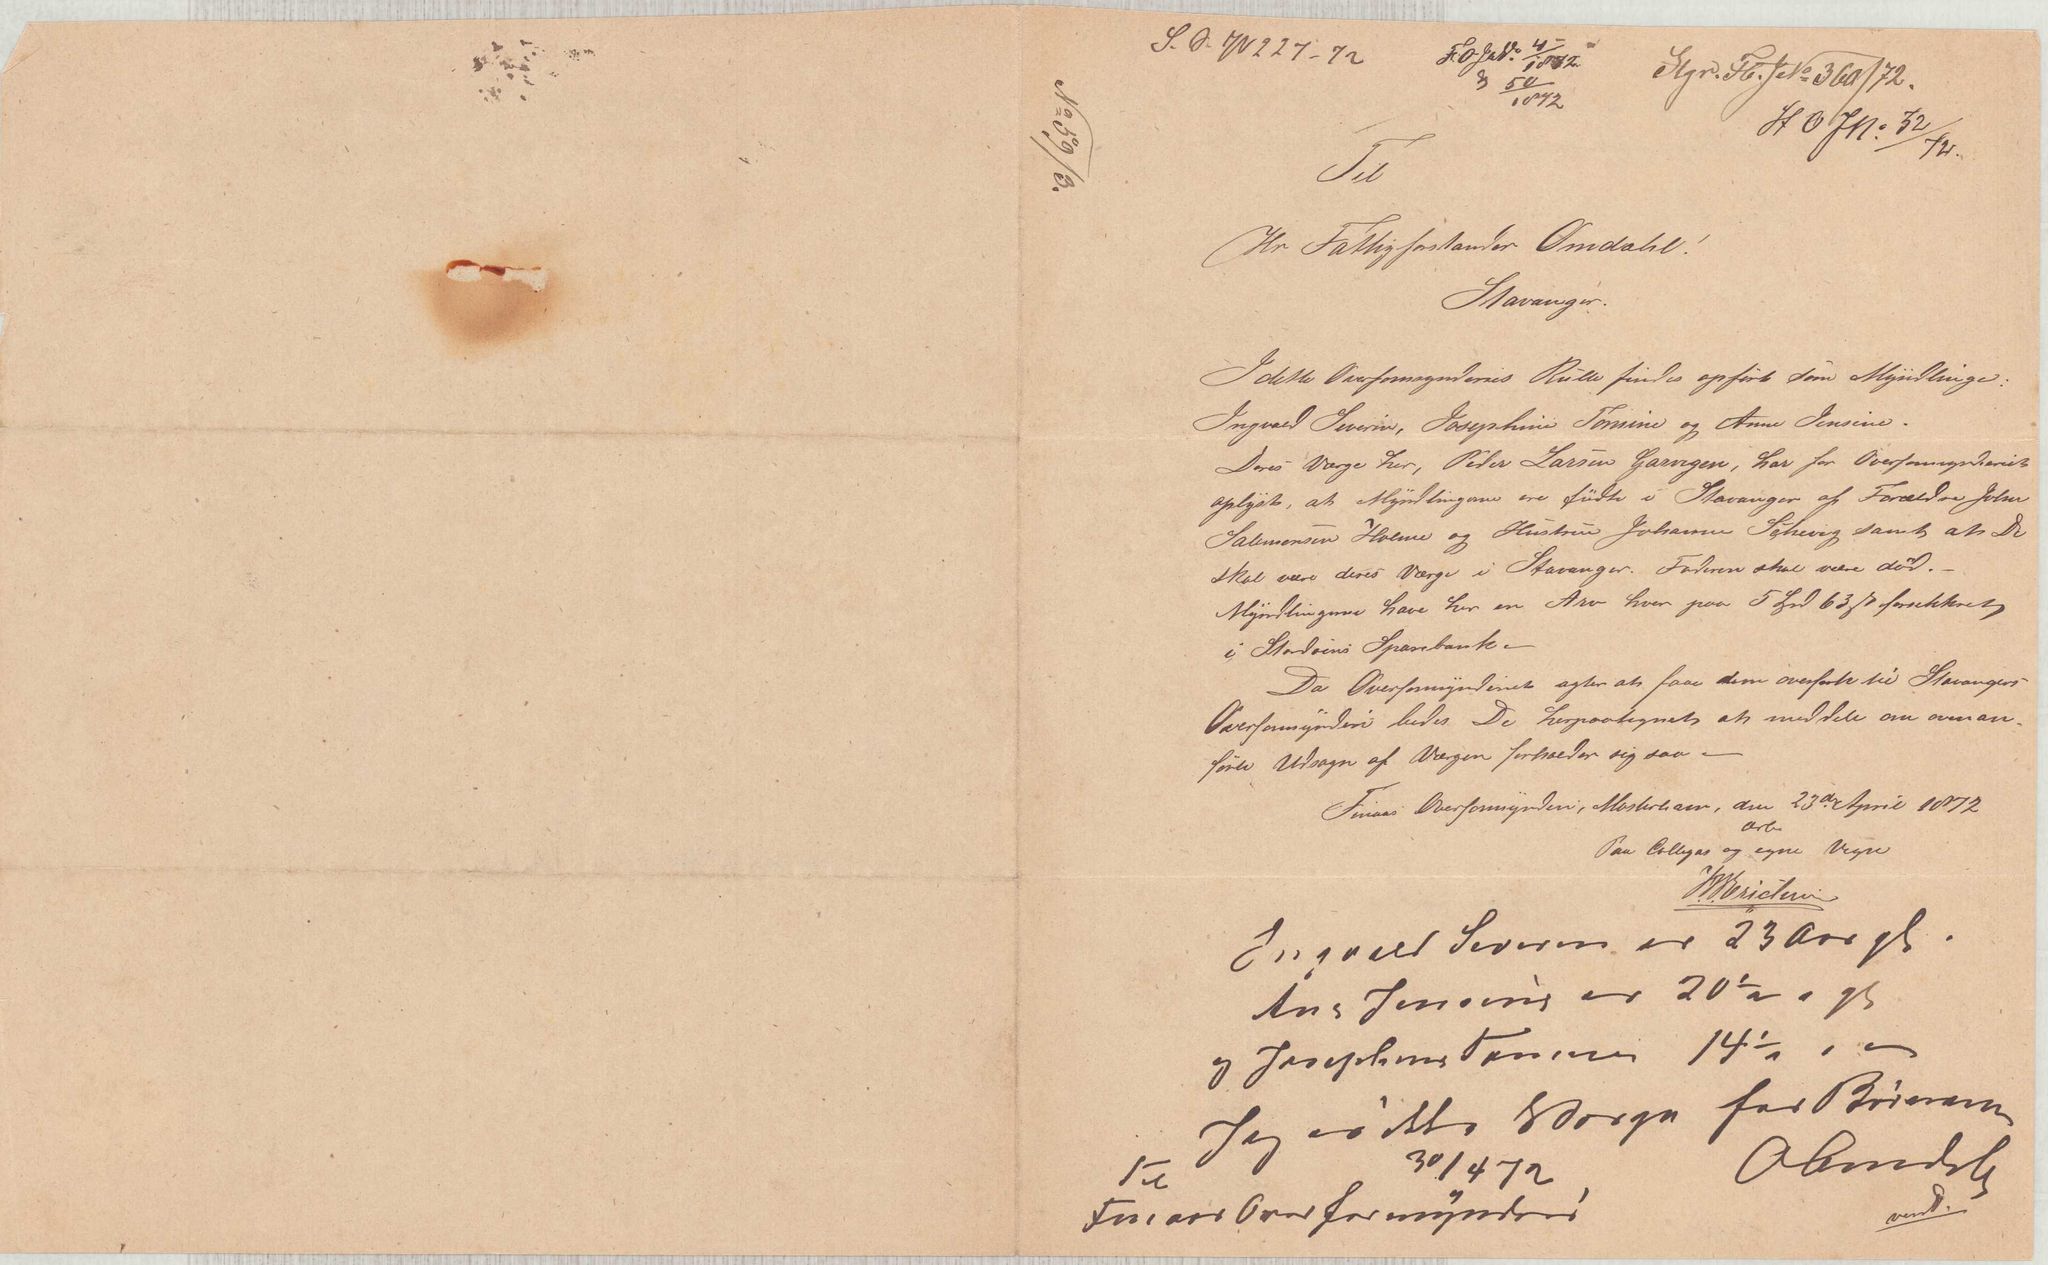 S. O. JN 227-72
F.O. JNo. 45/1872
& 50/1872
Stgr. Fb. JNo 360/72.
St O JN. 32/72.
No 59/3.
Til
Hr Fattigforstander Omdahl!
Stavanger.
I dette Overformynderies Rulle findes opført som Myndlinge:
Ingvald Severin, Josephine Tomine og Anne Jensine.
Deres Værge her, Peder Larsen Garvegen, har for Overformynderiet
oplyst, at Myndlingerne ere fødte i Stavanger af Forældre John
Salemonsen Holme og Hustrue Johanne samt at De
skal være deres Værge i Stavanger. Faderen skal være død. –
Myndlingerne have her en Arv hver paa 5 Spd 63 ß forsikkret
i Stordøens Sparebank –
Da Overformynderiet agter at faae dem overført til Stavangers
Overformynderi bedes De herpaategnet at meddele om ovenan-
førte Udsagn af Værgen forholder sig saa –
Finaas Overformynderi, Mosterhavn, den 23de April 1872
Paa Collegas og egne Vegne
Ingvald Severin er 23 Aar gl.
Ane Jensine er 20 gl
og Josephine Tomine 14
Jeg er dette Værge for Børnene
30/4 72
Omdahl
Til
Finaas Overformynderi
vend.